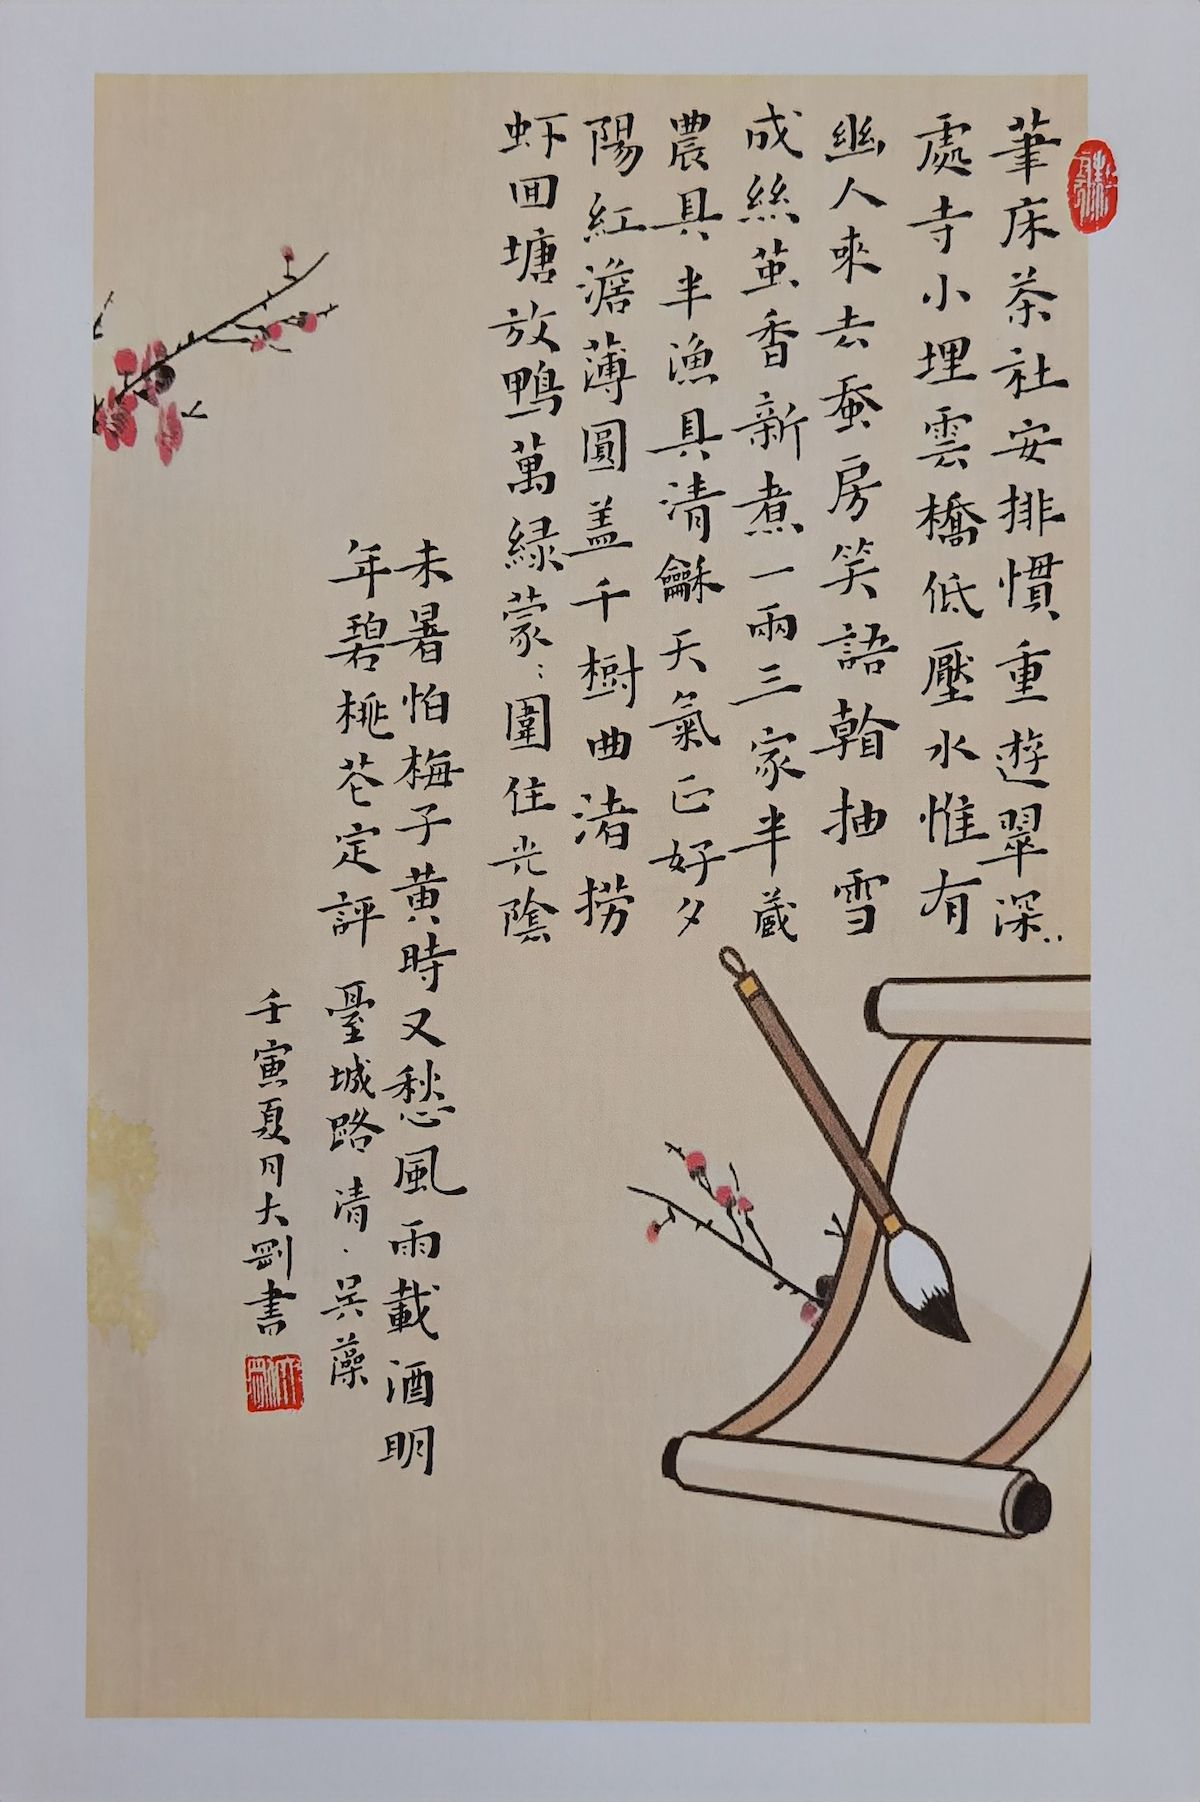 筆床茶社安排慣重遊翠深〻
處寺小埋雲橋低壓水惟有
幽人來去蚕房笑語翰抽雪
成絲茧香新煮一兩三家半蔵
農具半漁具清龢天氣正好夕
陽紅澹薄圓盖千樹曲渚撈
虾囬塘放鴨萬緑蒙〻圍住光陰
未暑怕梅子黄時又愁風雨載酒明
年碧桃花定評 臺城路 清·吴藻
壬寅夏月大剛書